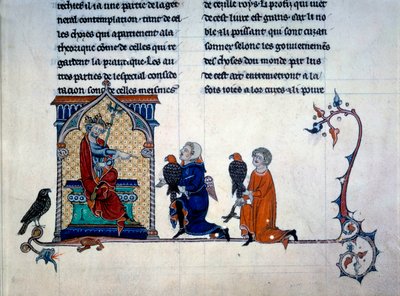 rechnes il a une partie de la ge
neral contemplation. tute de cel
les choses qui apartienent a la
theorique come de celles qui re
gardent la pratique. Et les au
tres parties de lespecial consi
ration sont de celles
de cezille roys. Et proffi qui muet
de cest liure est grans. car li no
ble & li poissant qui sont
sonner selonc les gouuernemens
des choses dou monde par lus
de cest art entremetront a la
fois ioies a lor cures. & li poure